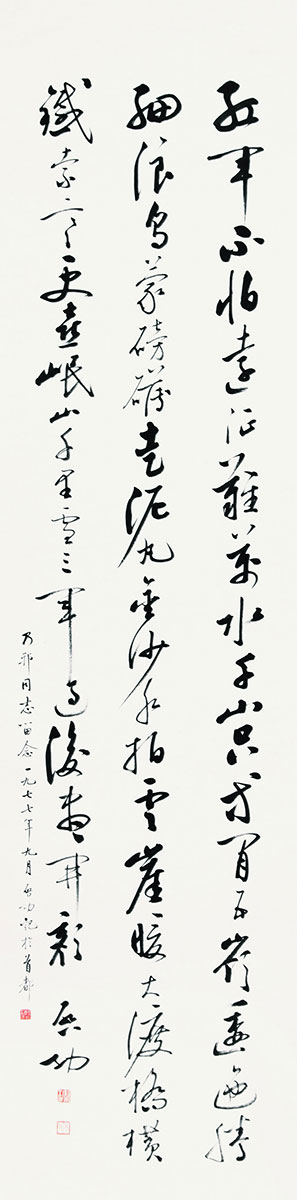 红军不怕远征难万水千山只等闲五岭逶迤腾
细浪乌蒙磅礴走泥丸金沙水拍云崖暖大渡桥横
铁索寒更喜岷山千里雪三军过后尽开颜 启功
乃邦同志留念一九七七年九月启功记于首都